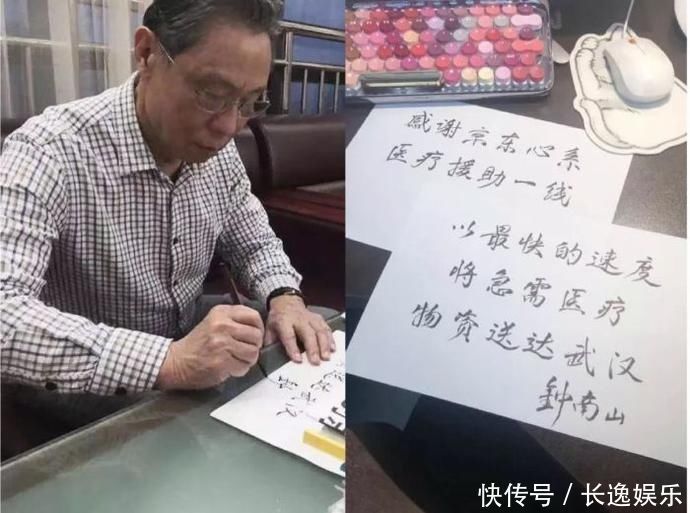 感谢京东心系
医疗援助一线
以最快的速度
将急需医疗
物资送达武汉
钟南山
快传号 / 长逸娱乐